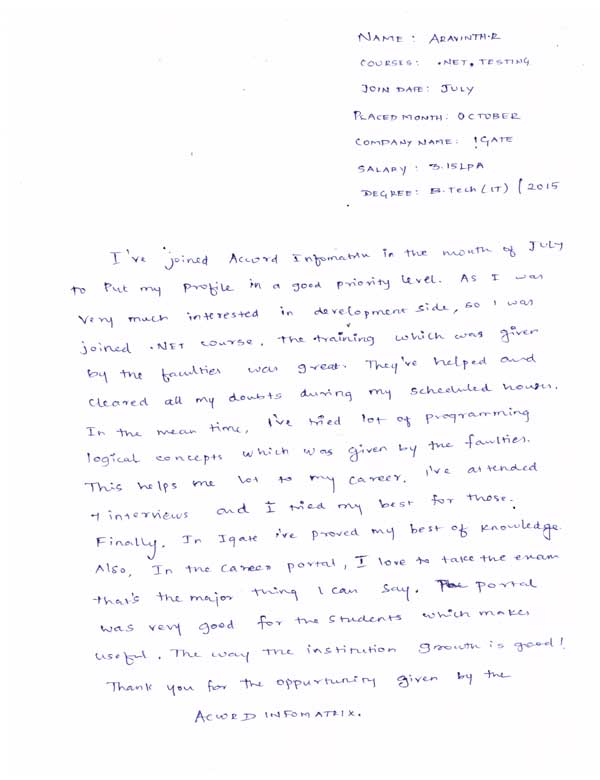 NAME: ARAVINTH.R
COURSES: .NET, TESTING
JOIN DATE: JULY
PLACED MONTH: OCTOBER
COMPANY NAME: IGATE
SALARY: 3.15LPA
DEGREE: B.Tech (IT) / 2015
I've joined Acword Infomatrix in the month of JULY
to Put my Profile in a good priority level. As I was
very much interested in development side, so I was
joined .NET course. The training which was given
by the faculties was great. They've helped and
cleared all my doubts during my scheduled hours.
In the mean time, I've tried lot of programming
logical concepts which was given by the faulties.
This helps me lot to my career. I've attended
7 interviews and I tried my best for those.
Finally, In Igate i've proved my best of knowledge.
Also, In the career portal, I love to take the exam
that's the major thing I can say. The portal
was very good for the students which makes
useful. The way the institution growth is good!
Thank you for the oppurtunity given by the
ACWRD INFOMATRIX.